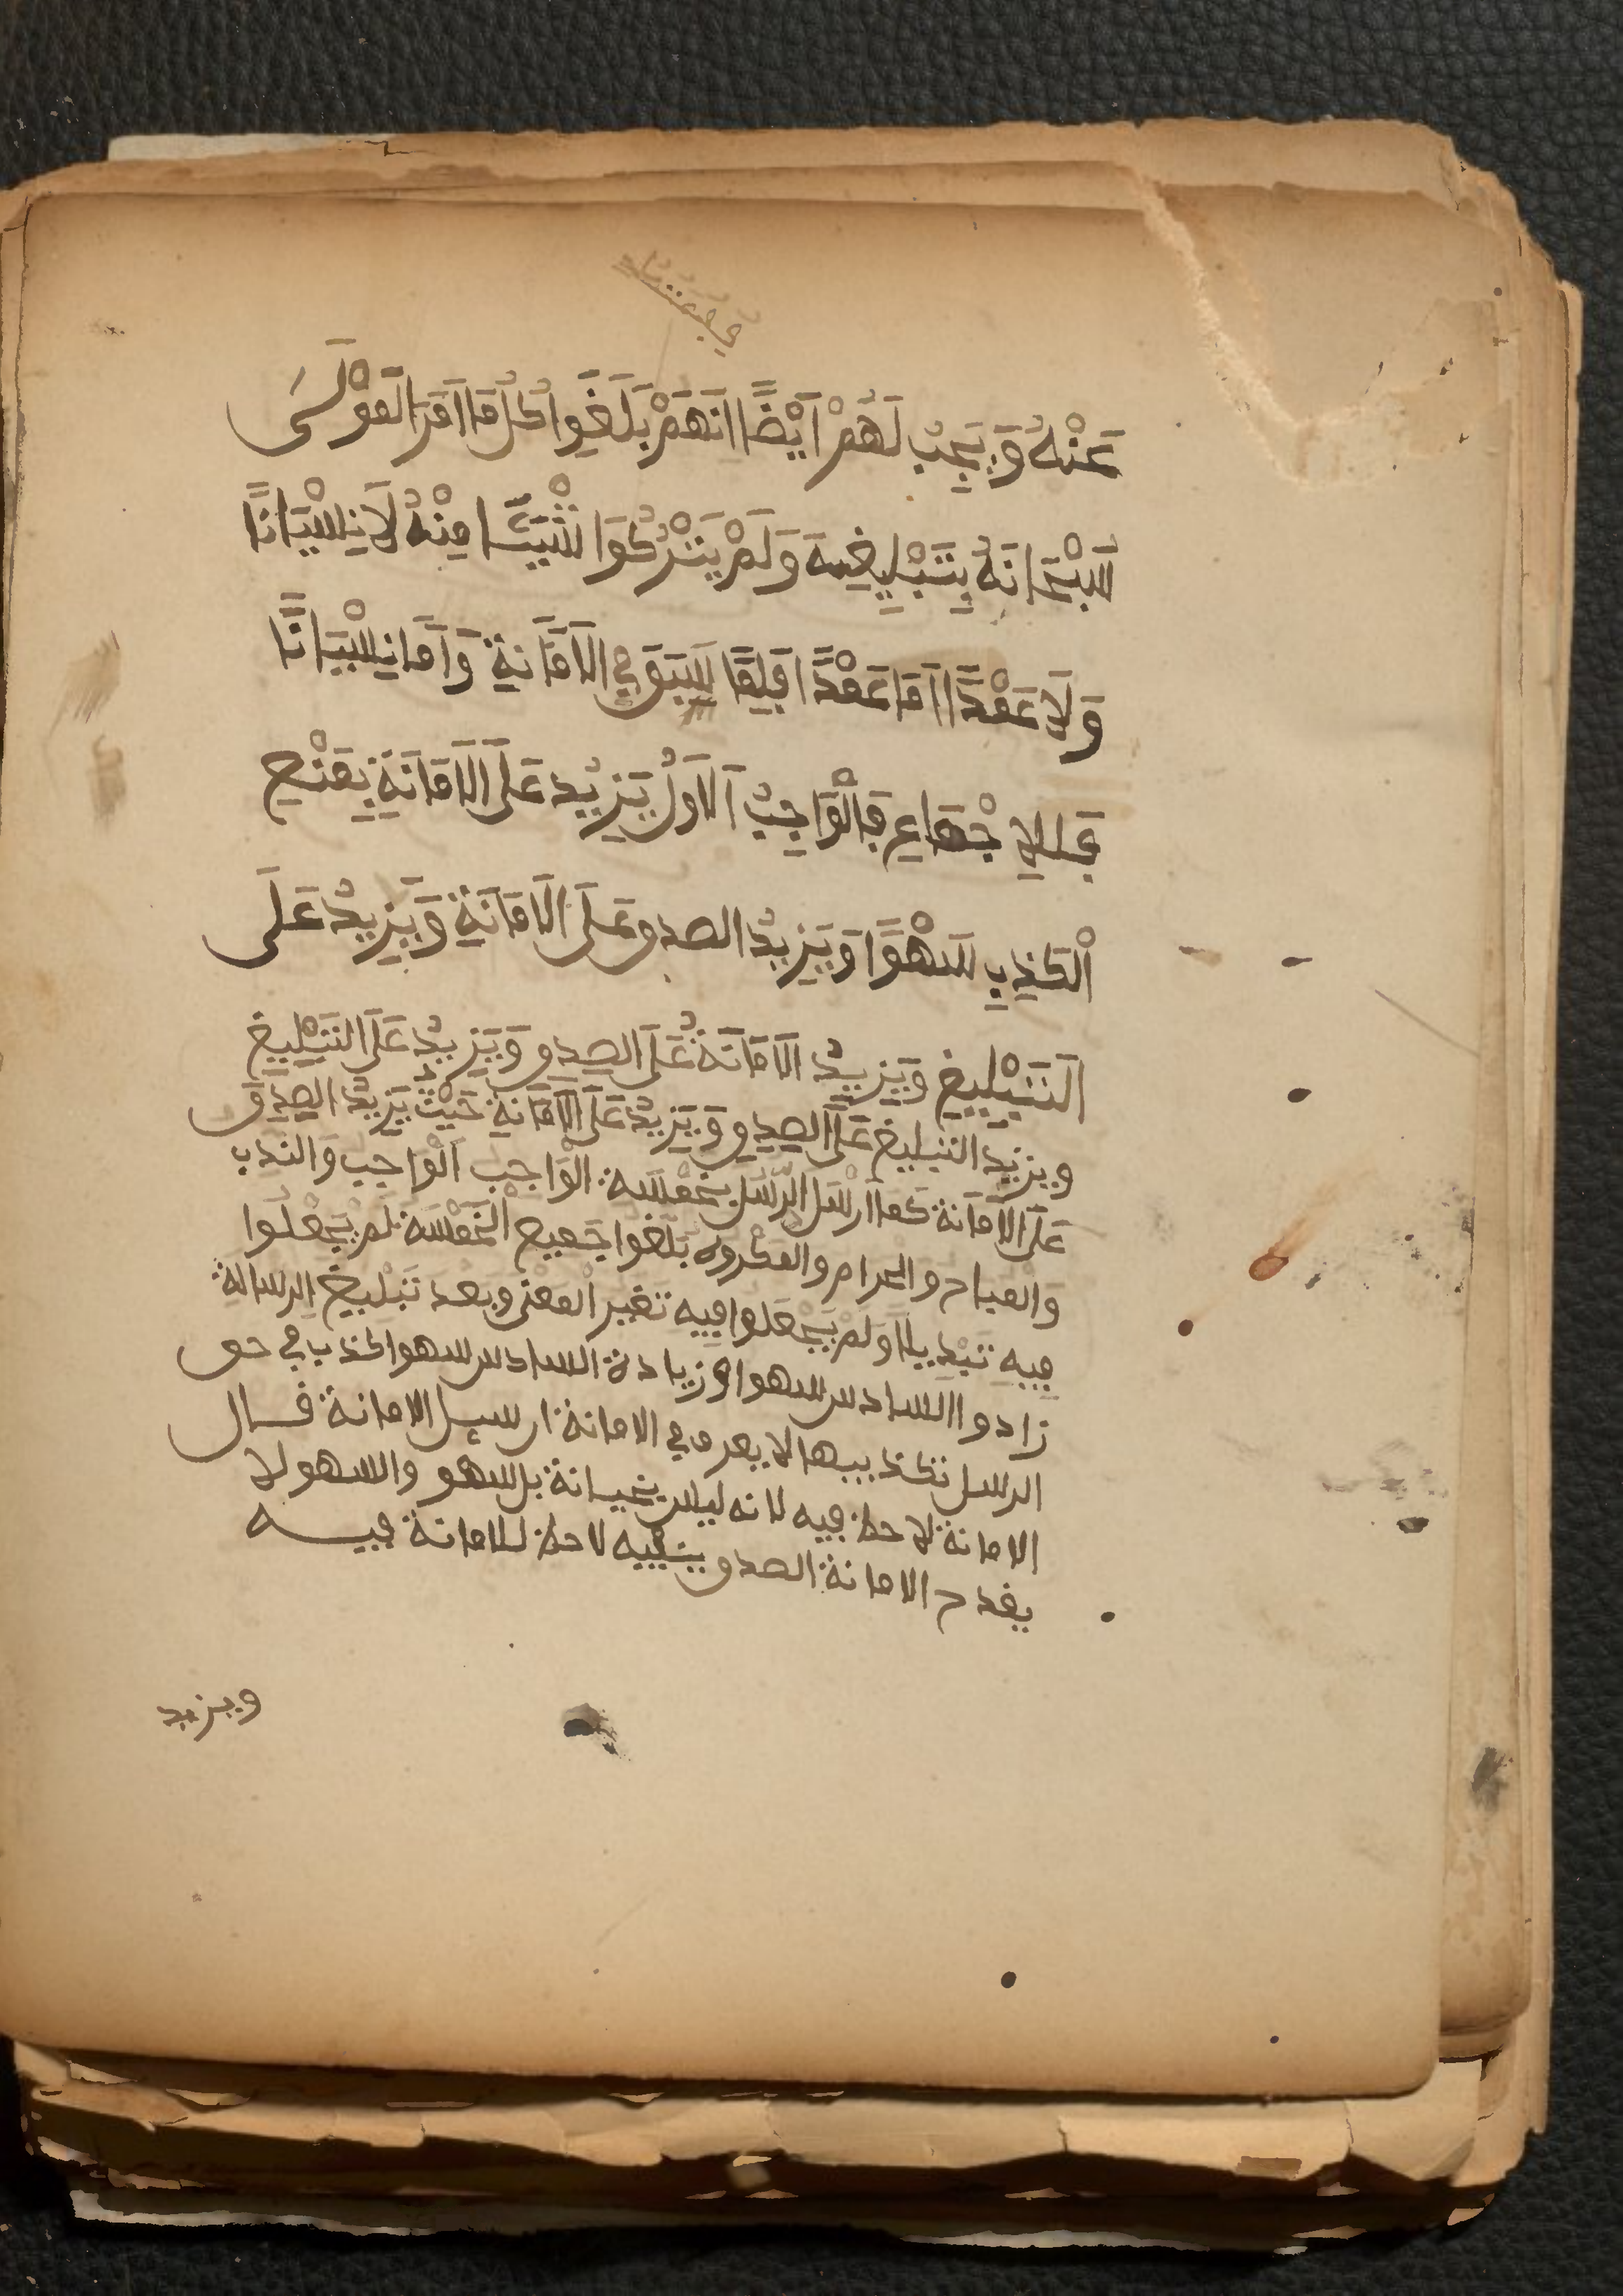 عَنْهُ وَيَجِبُ لَهُمْ أَيْضًا اَنَّهُمْ بَلَغُوا كُلَّ مَا اَمَرَ الْمَوْلَى
سُبْحَانَهُ بِتَبْلِيغِهِ وَلَمْ يَتْرُكُوا شَيْئًا مِنْهُ لَا نِسْيَانًا
وَلَا عَمْدًا اَمَّا عَمْدًا فَلِمَا سَبَقَ فِي الْاَمَانَةِ وَاَمَّا نِسْيَانًا
فَلِلْاِجْمَاعِ فَالْوَاجِبُ الْاَوَّلُ يَزِيدُ عَلَى الْاَمَانَةِ بِمَنْعِ
الْكَذِبِ سَهْوًا وَيَزِيدُ الصدق عَلَى الْاَمَانَةِ وَيَزِيدُ عَلَى
التَّبْلِيغِ وَيَزِيدُ الْاَمَانَةُ عَلَى الصِّدِقِ وَيَزِيدُ عَلَى التَّبْلِيغِ
ويزيد التبليغ عَلَى الصِّدِقِ وَيَزِيدُ عَلَى الْاَمَانَةِ حَيْثُ يَزِيدُ الصِّدِقَ
عَلَى الْاَمَانَة كما اَرْسَلَ الرُّسُلَ بِخَمْسَة الْوَاجِب الْوَاجِب وَالندب
وَالمباح والحرام والمكروه بَلَغوا جَمِيع الْخَمْسَة لَمْ يَجْعَلُوا
فِيهِ تَبْدِيلًا وَلَمْ يَجْعَلُوا فِيهِ تَغير المعنى وبعد تَبْلِيغ الرسالة
زادوا السادس سهوا وزيادة السادس سهوا كذب في حق
الرسل تكذيبها لا يعرف في الامانة ارسل الامانة قال
الامانة لا حظ فيه لانه ليس بخيانة بل سهو والسهو لا
يقدح الامانة الصدق ينفيه لا حظ للامانة فيه
ويزيد